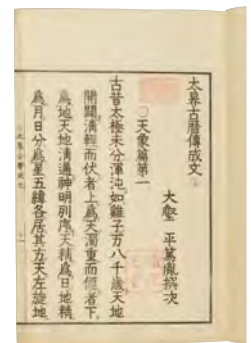 太昊古曆傳成文
大壑 平篤胤撰次
○天象篇第一
古昔太極未分渾沌如雞子万八千歲天地
開闢淸輕而伏者上爲天濁重而偃者下
爲地天地溝通神明列序天精爲日地精
爲月日分爲星五緯各居其方天左旋地